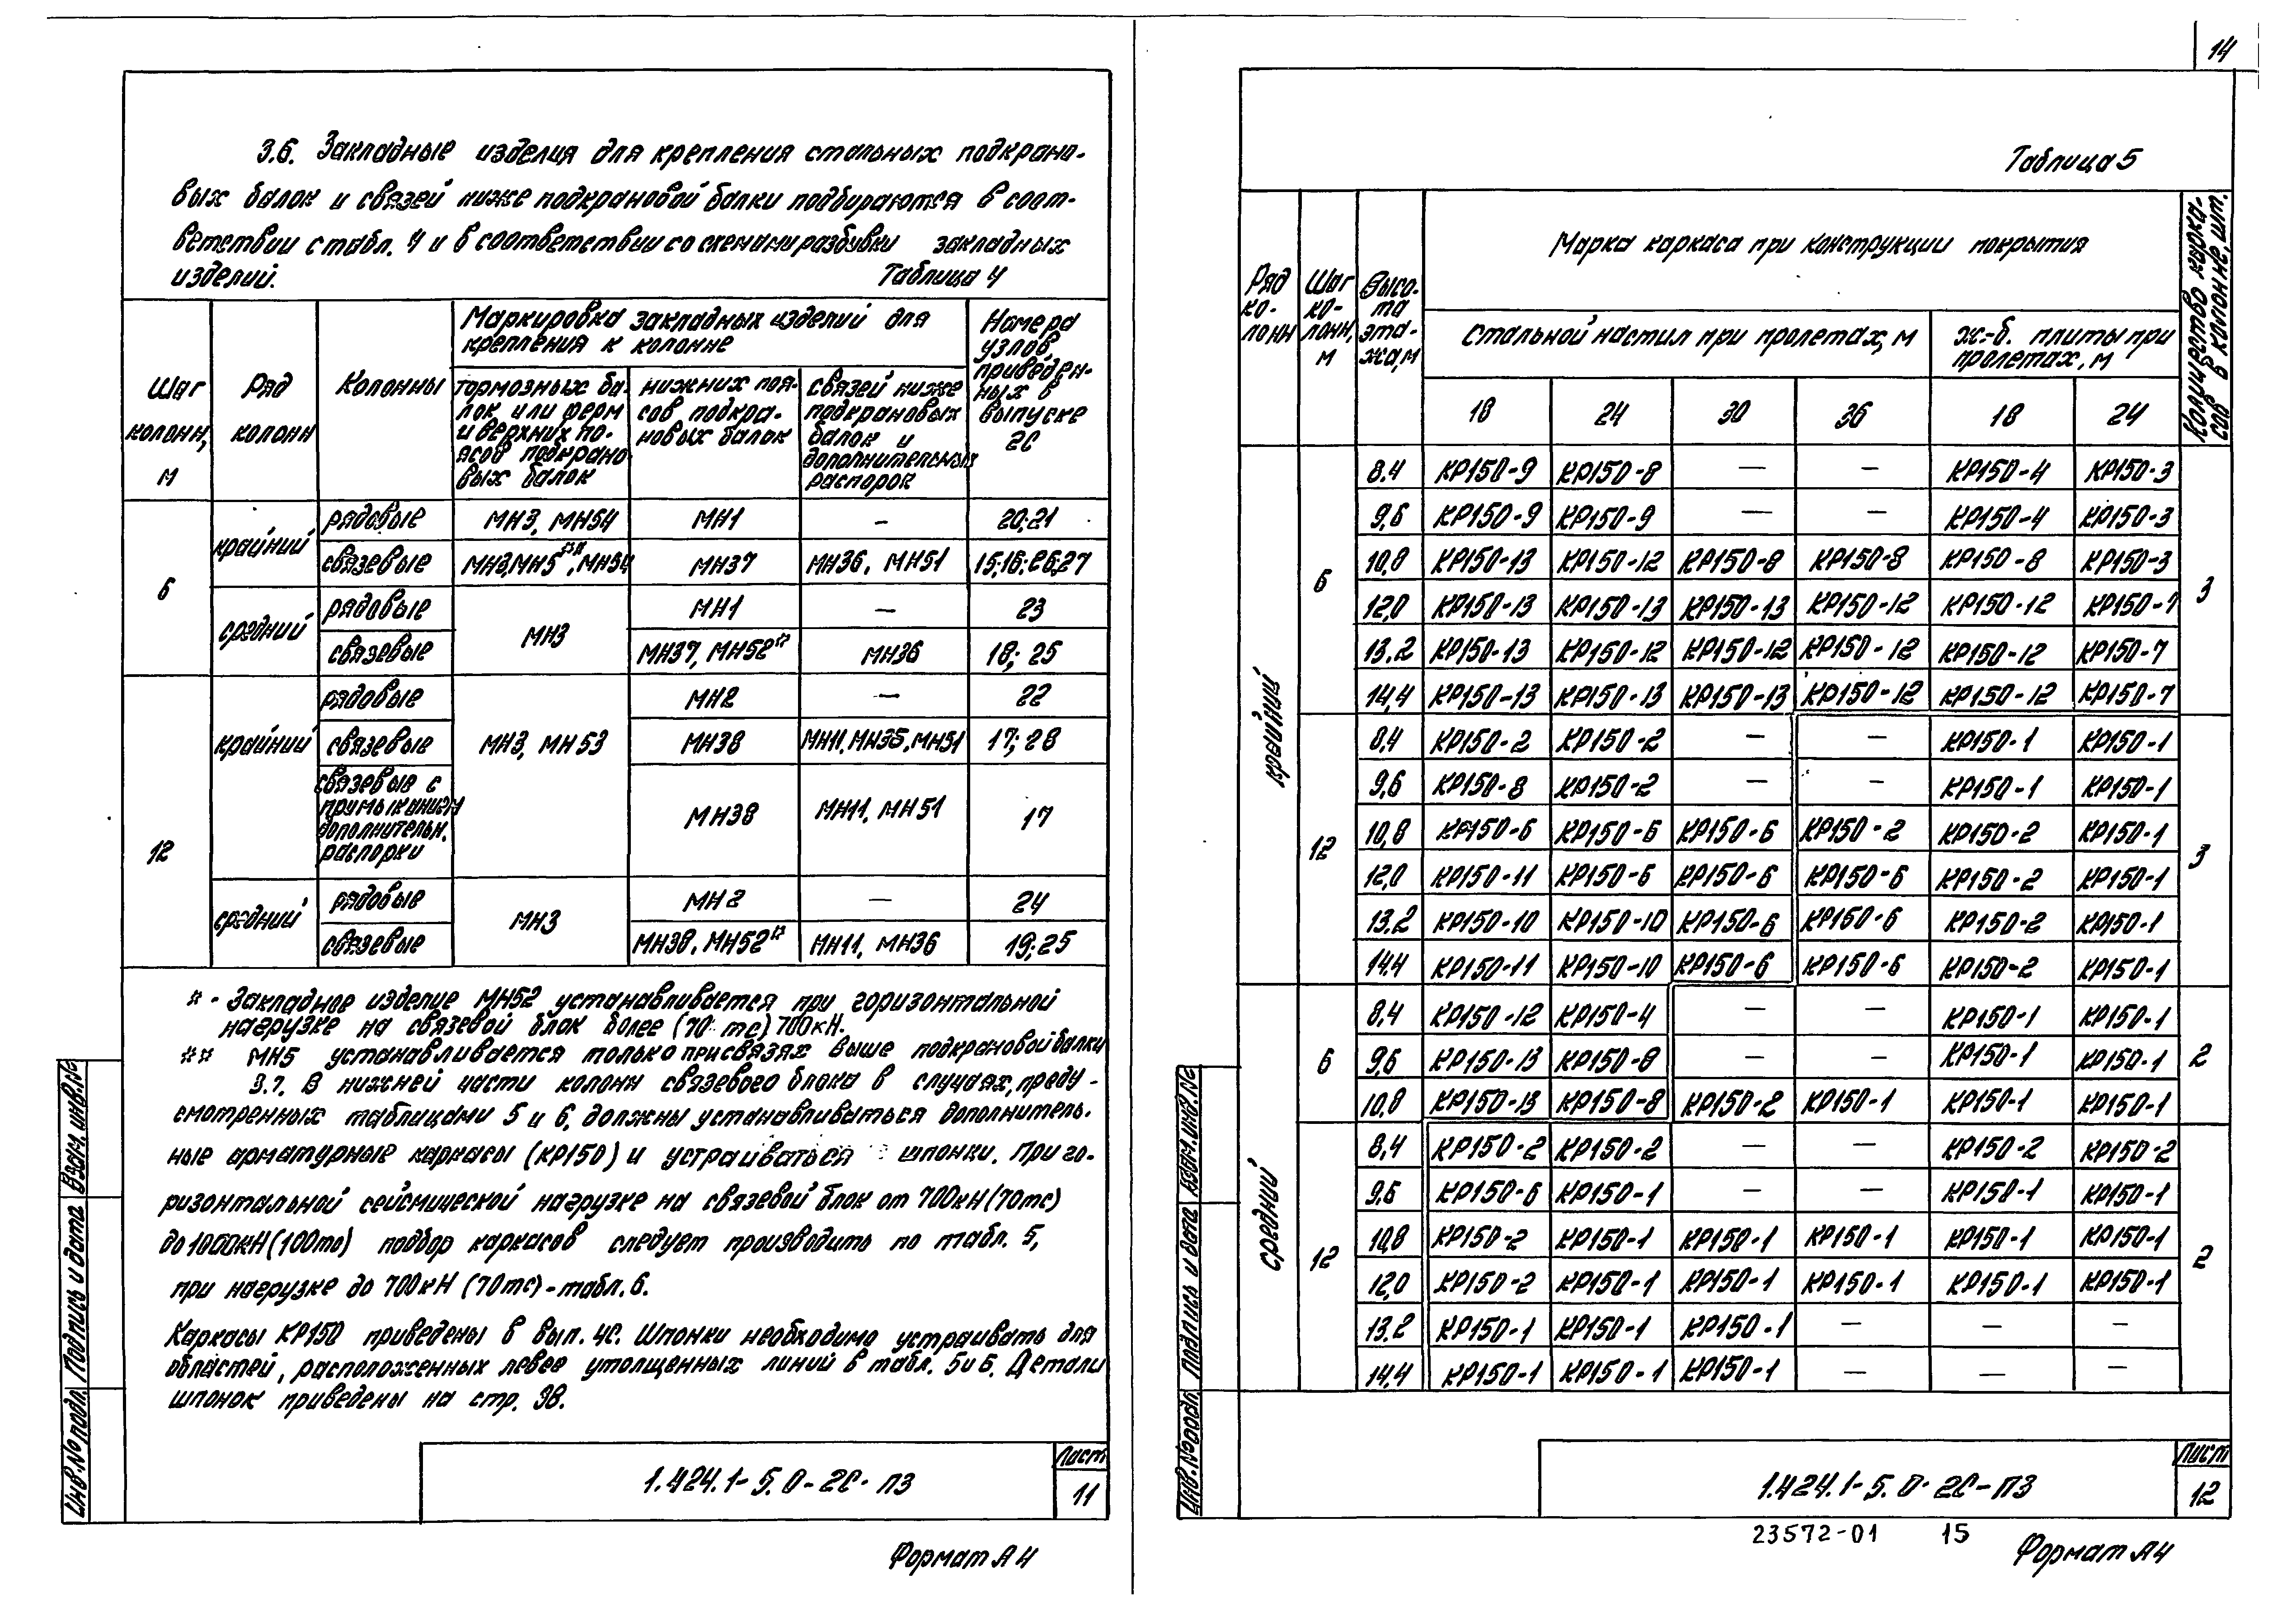 14
3.6. Закладные изделия для крепления стальных подкрано-
вых балок и связей ниже подкрановой балки подбираются в соот-
ветствии с табл. 4 и в соответствии со схемами разбивки закладных
изделий.
Таблица 4
Шаг колонн, м
Ряд колонн
Колонны
Маркировка закладных изделий для
крепления к колонне
Номера узлов, приведен-ных в выпуске 2С
тормозных ба-лок или ферм и верхних по-ясов подкрано вых балок
нижних поя-сов подкра-новых балок
связей ниже подкрановых балок и дополнительных распорок
6 крайний рядовые МН3, МН54 МН1 — 20;21
связевые МН3,МН5**,МН54 МН37 МН36, МН51 15;16;26;27
средний рядовые МН3 МН1 — 23
связевые МН37, МН52* МН36 18; 25
12 крайний рядовые МН3, МН53 МН2 — 22
связевые МН38 МН11,МН35,МН51 17;28
связевые с примыканием дополнительн. распорки МН38 МН11, МН51 17
средний рядовые МН3 МН2 — 24
связевые МН38, МН52* МН11, МН36 19;25
* - Закладное изделие МН52 устанавливается при горизонтальной
нагрузке на связевой блок более (70 тс) 700кН.
** МН5 устанавливается только при связях выше подкрановой балки
3.7. В нижней части колонн связевого блока в случаях, преду-
смотренных таблицами 5 и 6, должны устанавливаться дополнитель-
ные арматурные каркасы (КР150) и устраиваться шпонки. При го-
ризонтальной сейсмической нагрузке на связевой блок от 700кН (70тс)
до 1000кН (100тс) подбор каркасов следует производить по табл. 5,
при нагрузке до 700кН (70тс) - табл. 6.
Каркасы КР150 приведены в вып. 4С. Шпонки необходимо устраивать для
областей, расположенных левее утолщенных линий в табл. 5 и 6. Детали
шпонок приведены на стр. 38.
1.424.1-5.0-2С-ПЗ
Лист
11
Формат А4
Инв.№ подл. Подпись и дата Взам. инв.№
Таблица 5
Ряд ко-лонн
Шаг ко-лонн, м
Высо-та эта-жа,м
Марка каркаса при конструкции покрытия
Количество карка-сов в колонне, шт.
стальной настил при пролетах, м
ж.-б. плиты при пролетах, м
18 24 30 36 18 24
крайний 6 8.4 КР150-9 КР150-8 — — КР150-4 КР150-3 3
9,6 КР150-9 КР150-9 — — КР150-4 КР150-3
10,8 КР150-13 КР150-12 КР150-8 КР150-8 КР150-8 КР150-3
12,0 КР150-13 КР150-13 КР150-13 КР150-12 КР150-12 КР150-7
13,2 КР150-13 КР150-12 КР150-12 КР150-12 КР150-12 КР150-7
14,4 КР150-13 КР150-13 КР150-13 КР150-12 КР150-12 КР150-7
12 8,4 КР150-2 КР150-2 — — КР150-1 КР150-1 3
9,6 КР150-8 КР150-2 — — КР150-1 КР150-1
10,8 КР150-6 КР150-6 КР150-6 КР150-2 КР150-2 КР150-1
12,0 КР150-11 КР150-6 КР150-6 КР150-6 КР150-2 КР150-1
13,2 КР150-10 КР150-10 КР150-6 КР150-6 КР150-2 КР150-1
14,4 КР150-11 КР150-10 КР150-6 КР150-6 КР150-2 КР150-1
средний 6 8,4 КР150-12 КР150-4 — — КР150-1 КР150-1 2
9,6 КР150-13 КР150-8 — — КР150-1 КР150-1
10,8 КР150-13 КР150-8 КР150-2 КР150-1 КР150-1 КР150-1
12 8,4 КР150-2 КР150-2 — — КР150-2 КР150-2 2
9,6 КР150-6 КР150-1 — — КР150-1 КР150-1
10,8 КР150-2 КР150-1 КР150-1 КР150-1 КР150-1 КР150-1
12,0 КР150-2 КР150-1 КР150-1 КР150-1 КР150-1 КР150-1
13,2 КР150-1 КР150-1 КР150-1 — — —
14,4 КР150-1 КР150-1 КР150-1 — — —
1.424.1-5.0-2С-ПЗ
Лист
12
23572-01 15
Формат А4
Инв.№ подл. Подпись и дата Взам. инв.№